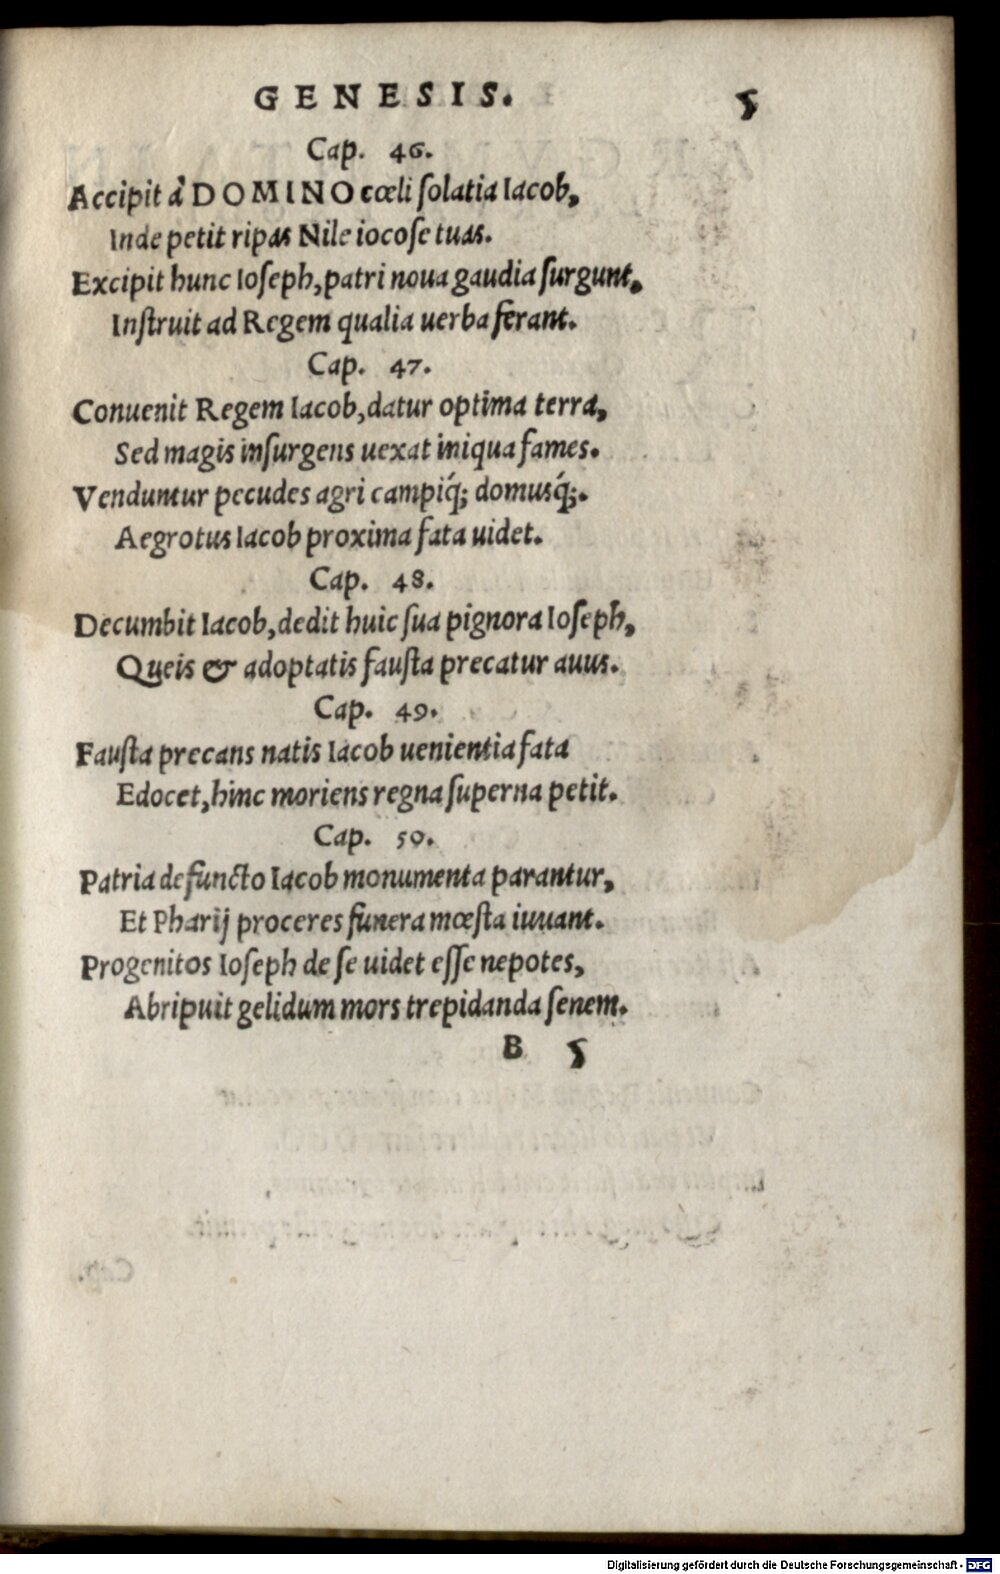 GENESIS. 5
Cap. 46.
Accipit à DOMINO cœli ſolatia Iacob,
Inde petit ripas Nile iocoſe tuas.
Excipit hunc Ioſeph, patri noua gaudia ſurgunt,
Inſtruit ad Regem qualia uerba ferant.
Cap. 47.
Conuenit Regem Iacob, datur optima terra,
Sed magis inſurgens uexat iniqua fames.
Venduntur pecudes agri campiq́; domusq́;.
Aegrotus Iacob proxima fata uidet.
Cap. 48.
Decumbit Iacob, dedit huic ſua pignora Ioſeph,
Queis & adoptatis fauſta precatur auus.
Cap. 49.
Fauſta precans natis Iacob uenientia fata
Edocet, hinc moriens regna ſuperna petit.
Cap. 50.
Patria defuncto Iacob monumenta parantur,
Et Pharij proceres funera mœſta iuuant.
Progenitos Ioſeph de ſe uidet eſſe nepotes,
Abripuit gelidum mors trepidanda ſenem.
B 5
Digitalisierung gefördert durch die Deutsche Forschungsgemeinschaft - DFG